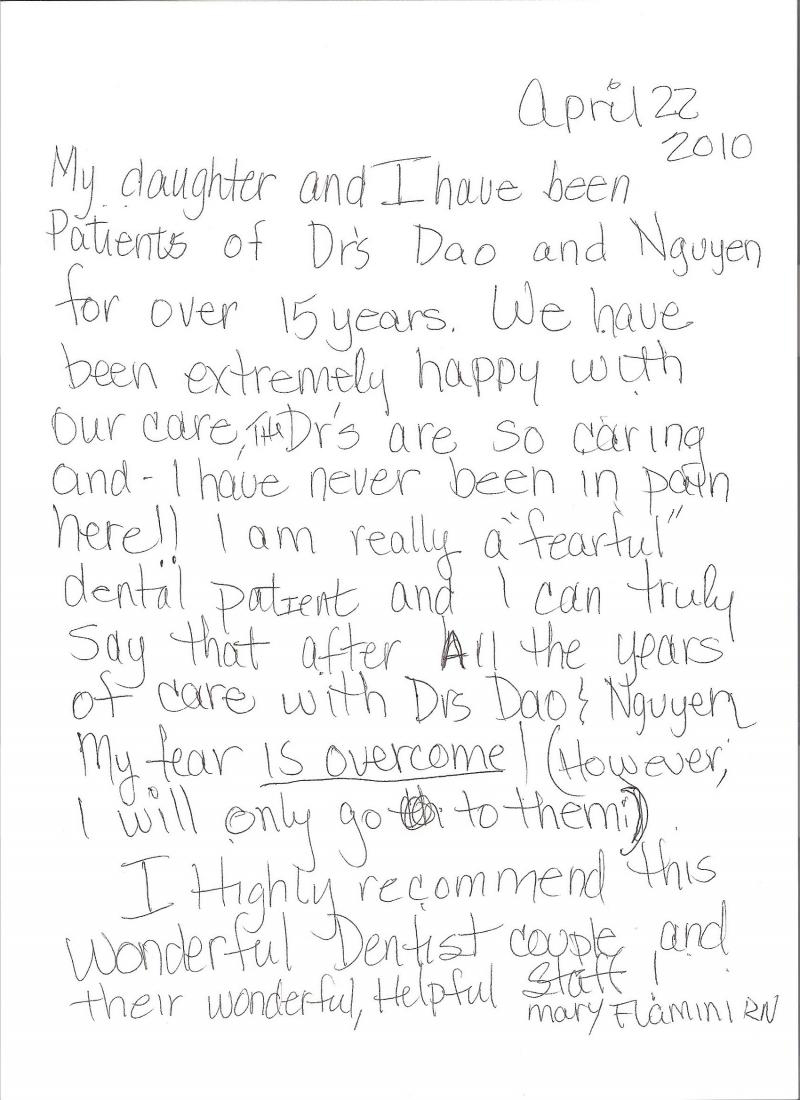 April 22
2010
My daughter and I have been
Patients of Dr's Dao and Nguyen
for over 15 years. We have
been extremely happy with
our care, The Dr's are so caring
and - I have never been in pain
here!! I am really a "fearful"
dental patient and I can truly
say that after All the years
of care with Drs Dao & Nguyen
My fear is overcome! (However,
I will only go to them!)
I Highly recommend this
Wonderful Dentist couple and
their wonderful, Helpful Staff!
mary Flamini RN